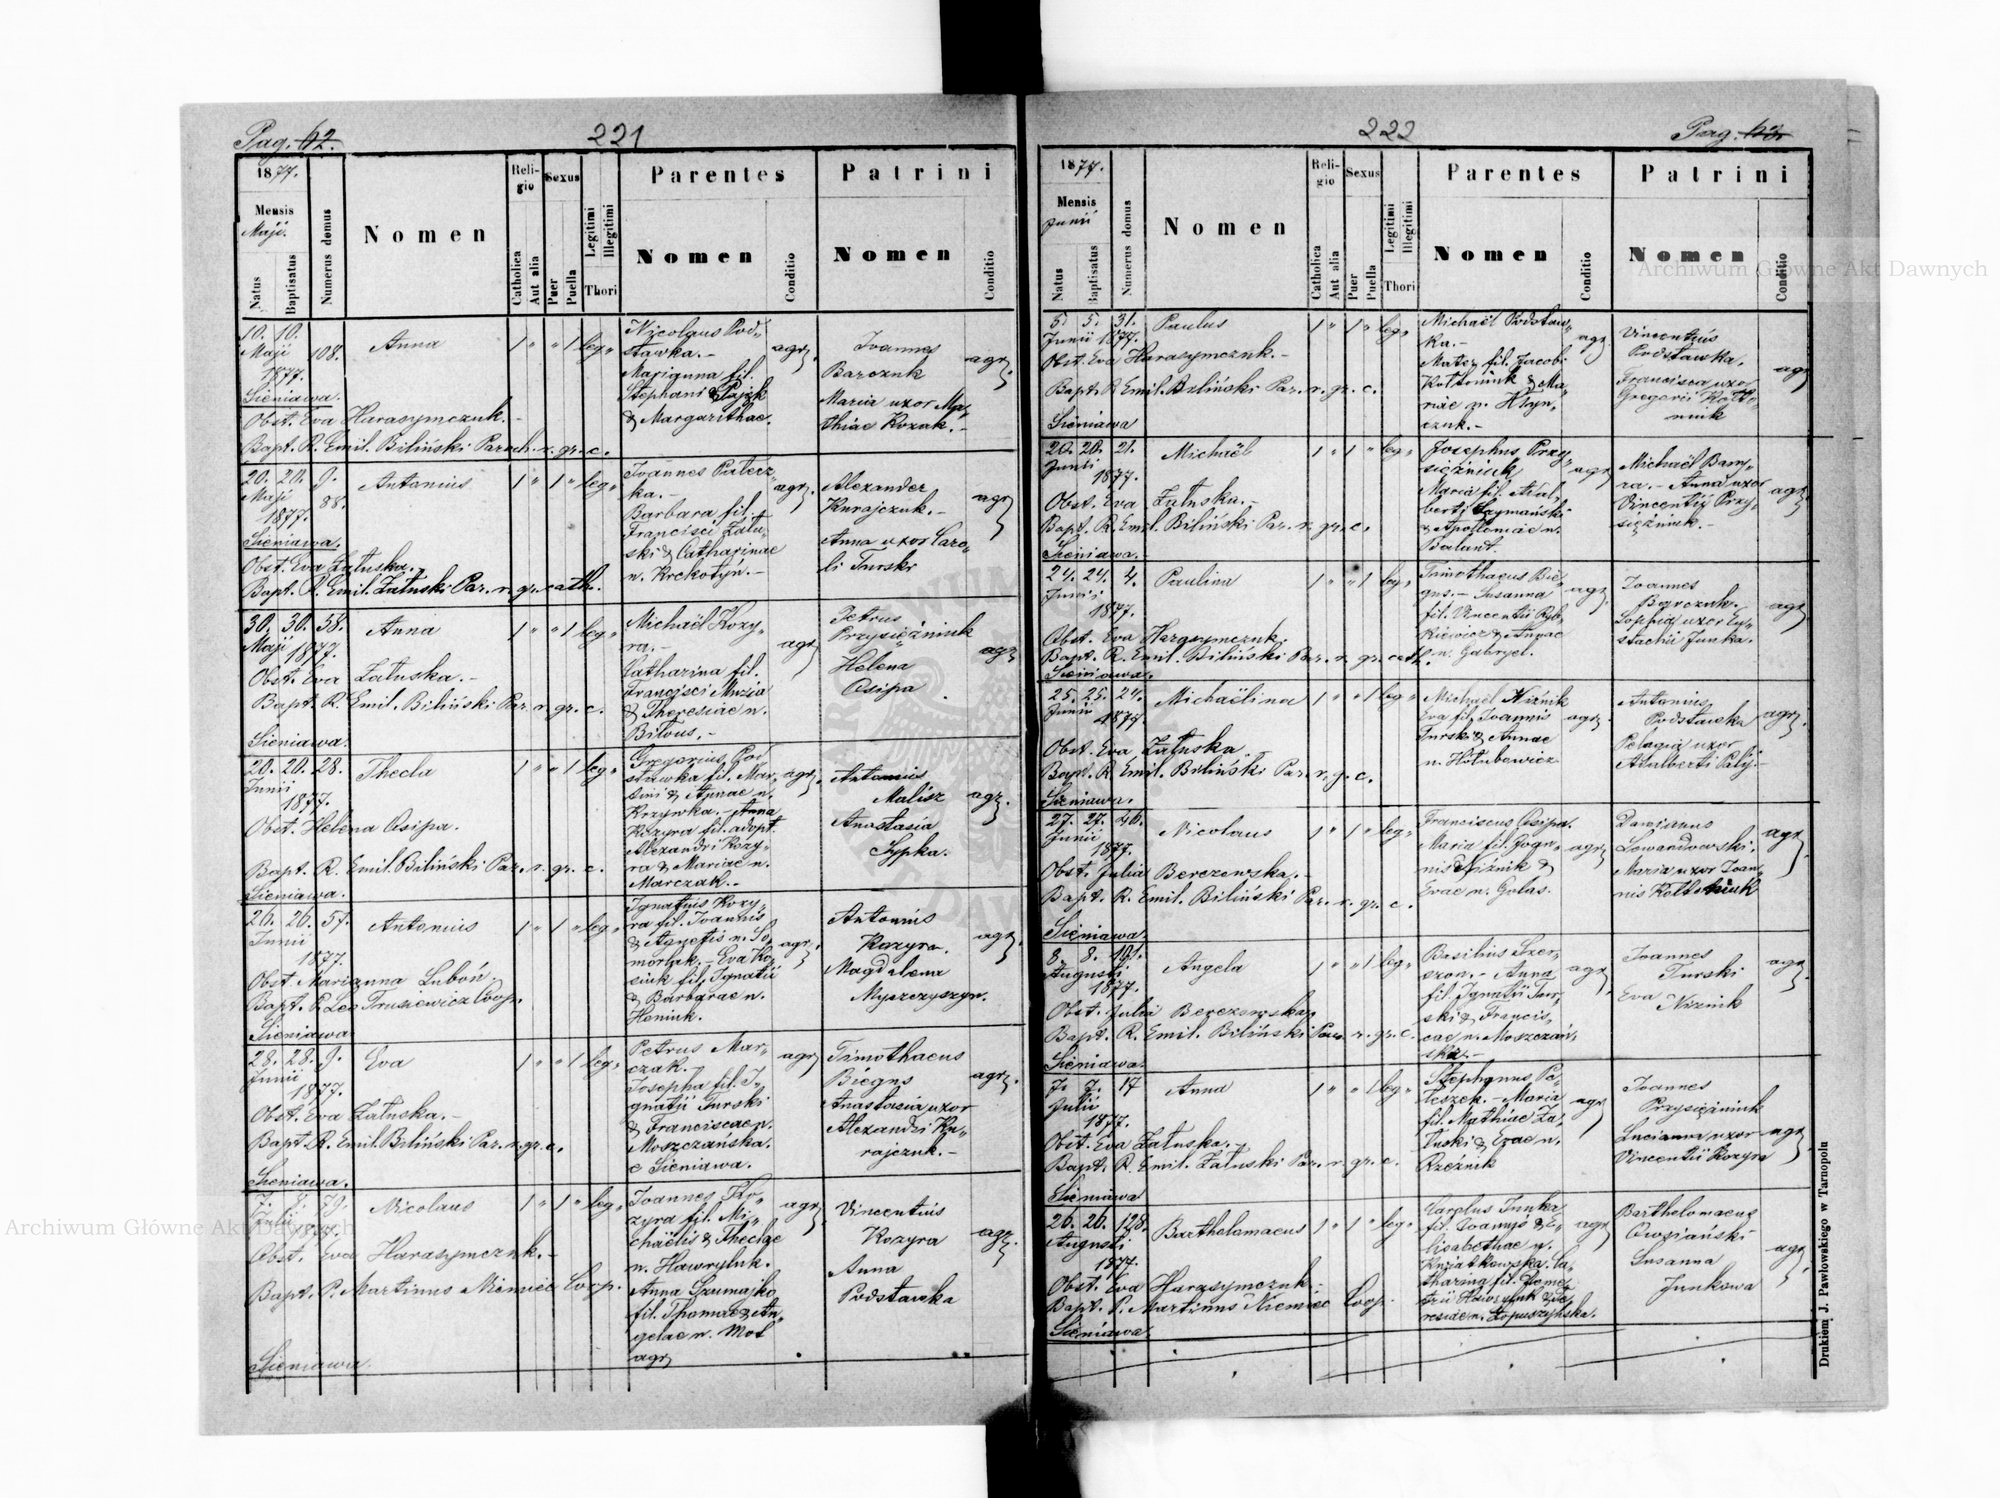 Pag. 62.
221
1877.
Mensis
Maji.
Natus
Baptisatus
Numerus domus
Nomen
Religio
Catholica
Aut alia
Sexus
Puer
Puella
Legitimi
Illegitimi
Thori
Parentes
Nomen
Conditio
Patrini
Nomen
Conditio
10. 10. 108. Anna 1 " " 1 leg"
Maji
1877.
Sieniawa.
Obst. Eva Harasymczuk.
Bapt. R. Emil. Biliński Paroch. r. gr. c.
Nicolaus Pod-
stawka. - agr.
Marianna fil.
Stephani
& Margarithae.
Joannes
Barczuk agr.
Maria uxor Ma-
thiae Kozak. -
20. 20. 9. Antonius 1 " 1 " leg"
Maji 88.
1877.
Sieniawa.
Obst. Eva Załuska.
Bapt. R. Emil. Załuski Par. r. gr. cath.
Joannes
ka. - agr.
Barbara fil.
Francisci Zału-
ski & Catharinae
n. Krekotyń. -
Alexander
Kurajczuk. - agr
Anna uxor Caro-
li Turski
30. 30. 58. Anna 1 " " 1 leg"
Maji 1877.
Obst. Eva Załuska. -
Bapt. R. Emil. Biliński Par. r. gr. c.
Sieniawa.
Michaël Kozy-
ra. - agr
Catharina fil.
Francisci Muzia
& Theresiae n.
Bilous. -
Petrus
Przysiężniuk
Helena agr
Osipa
20. 20. 28. Thecla 1 " " 1 leg"
Junii
1877.
Obst. Helena Osipa.
Bapt. R. Emil. Biliński Par. r. gr. c.
Sieniawa.
Gregorius Pod-
stawka fil. Mar- agr.
tini & Annae n.
Krzywka. - Anna
Kozyra fil. adopt.
Alexandri Kozy-
ra & Mariae n.
Marczak. -
Antonius
Malisz agr.
Anastasia
Sypka.
26. 26. 57. Antonius 1 " 1 " leg"
Junii
1877.
Obst. Marianna Luboń.
Bapt. P. Leo Trusiewicz Coop.
Sieniawa
Ignatius Kozy-
ra fil. Joannis
& Agnetis n. So-
morlak. - Eva Ko- agr.
siuk fil. Ignatii
& Barbarae n.
Heniuk.
Antonius
Kozyra. agr
Magdalena
Myszczyszyn.
28. 28. 9. Eva 1 " " 1 leg"
Junii
1877.
Obst. Eva Załuska. -
Bapt. R. Emil. Biliński Par. r. gr. c.
Sieniawa.
Petrus Mar- agr
czak.
Josepha fil. I-
gnatii Turski
& Franciscae n.
Moszczańska.
e Sieniawa.
Timothaeus
Biegus agr.
Anastasia uxor
Alexandri Ku-
rajczuk. -
7. 8. 79. Nicolaus 1 " 1 " leg"
Julii
1877.
Obst. Eva Harasymczuk. -
Bapt. P. Martinus Niemiec Coop.
Sieniawa.
Joannes Ko-
zyra fil. Mi- agr
chaëlis & Theclae
n. Hawryluk.
Anna Szumajko
fil. Thomae & An-
gelae n. Mol
agr
Vincentius
Kozyra agr.
Anna
Podstawka
222
Pag. 63.
1877.
Mensis
Junii
Natus
Baptisatus
Numerus domus
Nomen
Religio
Catholica
Aut alia
Sexus
Puer
Puella
Legitimi
Illegitimi
Thori
Parentes
Nomen
Conditio
Patrini
Nomen
Conditio
5. 5. 31. Paulus 1 " 1 " leg"
Junii 1877.
Obst. Eva Harasymczuk. -
Bapt. R. Emil. Biliński Par. r. gr. c.
Sieniawa
Michaël Podstaw-
ka. - agr
Mater fil. Jacobi
Kottoniuk & Ma-
riae n. Hryn-
czuk. -
Vincentius
Podstawka.
Francisca uxor agr
Gregorii Kotto-
niuk
20. 20. 21. Michaël 1 " 1 " leg"
Junii
1877.
Obst. Eva Załuska. -
Bapt. R. Emil. Biliński Par. r. gr. c.
Sieniawa. -
Josephus Przy-
siężniuk agr
Maria fil. Adal-
berti Szymański
& Apolloniae n.
Balant.
Michaël Bary-
ra. - Anna uxor
Vincentii Przy- agr
siężniuk. -
24. 24. 4. Paulina 1 " " 1 leg"
Junii
1877.
Obst. Eva Harasymczuk.
Bapt. R. Emil. Biliński Par. r. gr. cath.
Sieniawa.
Timothaeus Bie-
gus. - Susanna agr.
fil. Vincentii Ryb-
kiewicz & Annae
n. Gabryel.
Joannes
Barczuk. agr
Sophia uxor Eu-
stachii Junka.
25. 25. 24. Michaëlina 1 " " 1 leg"
Junii
1877
Obst. Eva Załuska.
Bapt. R. Emil. Biliński Par. r. g. c.
Sieniawa.
Michaël Niźnik
Eva fil. Joannis agr.
Turski & Annae
n. Hołubowicz
Antonius
Podstawka agr.
Pelagia uxor
Adalberti Palij. -
27. 27. 46. Nicolaus 1 " 1 " leg"
Junii
1877.
Obst. Julia Berezowska. -
Bapt. R. Emil. Biliński Par. r. gr. c.
Sieniawa.
Franciscus Osipa.
Maria fil. Joan- agr
nis Niźnik &
Evae n. Golas.
Damianus
Lewandowski. agr
Maria uxor Joan-
nis Kottoniuk
8. 8. 101. Angela 1 " " 1 leg"
Augusti
1877.
Obst. Julia Berezowska
Bapt. R. Emil. Biliński Par. r. gr. c.
Sieniawa.
Basilius Szer-
szon. - Anna agr
fil. Ignatii Tur-
ski & Francis-
cae n. Moszczań-
ska. -
Joannes
Turski agr
Eva
Niźnik
7. 7. 17 Anna 1 " " 1 leg"
Julii
1877.
Obst. Eva Załuska. -
Bapt. R. Emil. Załuski Par. r. gr. c.
Sieniawa
Stephanus Pe-
leszek. - Maria agr
fil. Mathiae Za-
łuski & Evae n.
Rzeźnik
Joannes
Przysiężniuk
Lucianna uxor agr
Vincentii Kozyra
26. 26. 128. Bartholomaeus 1 " 1 " leg"
Augusti
1877.
Obst. Eva Harasymczuk. -
Bapt. P. Martinus Niemiec Coop.
Sieniawa.
Carolus Junka
fil. Joannis & E- agr
lisabethae n.
Kwiatkowska. Ca-
tharina fil. Deme-
trii & The-
resiae n. Łopuszyńska.
Bartholomaeus
Owsiański
Susanna agr
Junkowa
Drukiem J. Pawłowskiego w Tarnopolu
Archiwum Główne Akt Dawnych
Archiwum Główne Akt Dawnych